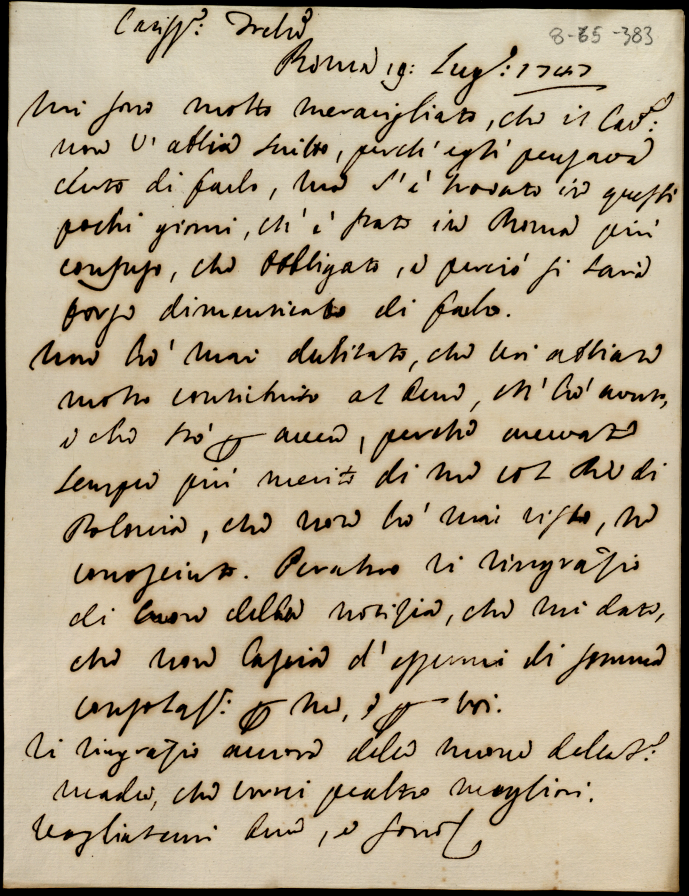 Cariss.º: Frello
8-65-383
Roma 19: Lug.º: 1747
Mi sono molto meravigliato, che il Cav.e:
non v'abbia scritto, perch'egli pensava
certo di farlo, ma s'è trovato in questi
pochi giorni, ch'è stato in Roma più
confuso, che obbligato, e perciò si sarà
forse dimenticato di farlo.
Non hò mai dubitato, che voi abbiate
molto contribuito al bene, ch'hò avuto,
e che stò p avere, perche avevate
sempre più merito di me col Rè di
Polonia, che non hò mai visto, ne
conosciuto. Peraltro vi ringrazio
di cuore della notizia, che mi date,
che non lascia d'essermi di somma
consolaz.e: p me, e p voi.
Vi ringrazio ancora delle nuove della S.a
madre, che vorrei peraltro migliori.
Vogliatemi bene, e sono